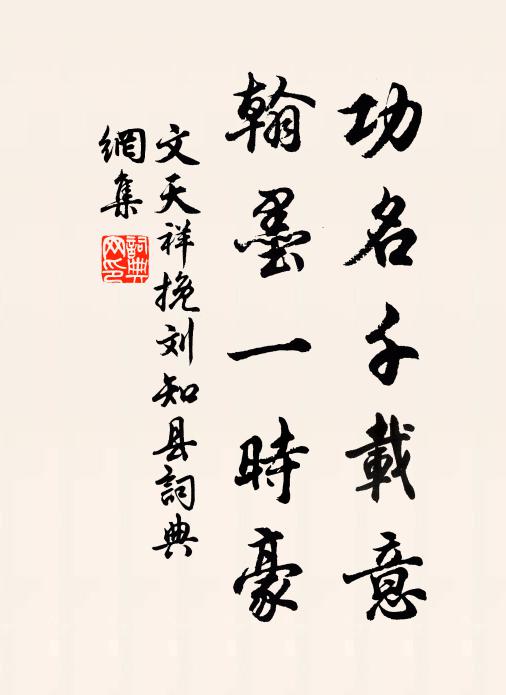 功名千載意
翰墨一時豪
文天祥挽刘知县詞典
網集
詞典网印